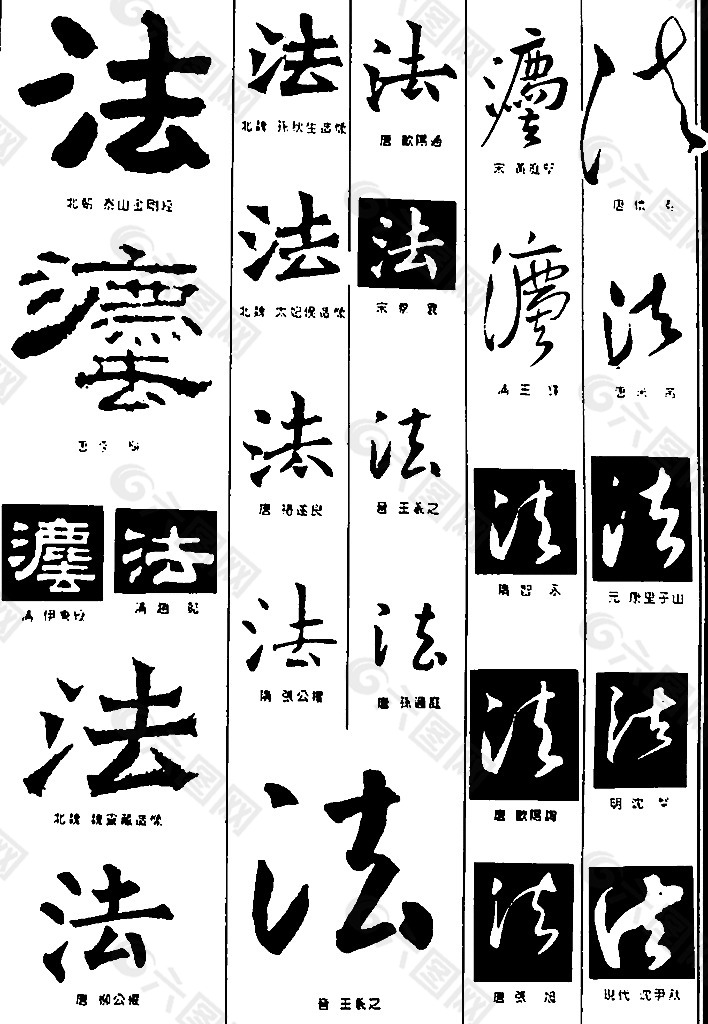 法
北朝 泰山金剛經
灋
唐 李
灋
清 伊秉綬
法
清 趙
法
北魏 魏靈藏造像
法
唐 柳公權
法
北魏 孫秋生造像
法
北魏 太妃侯造像
法
唐 褚遂良
法
隋 張公禮
法
唐 歐陽通
法
宋
法
晉 王羲之
法
唐 孫過庭
法
晉 王羲之
灋
宋 黃庭堅
灋
清 王
法
隋 智永
法
唐 歐陽詢
法
唐 張旭
法
唐 懷素
法
法
元 康里子山
法
明 沈
法
現代 沈尹默
六图网